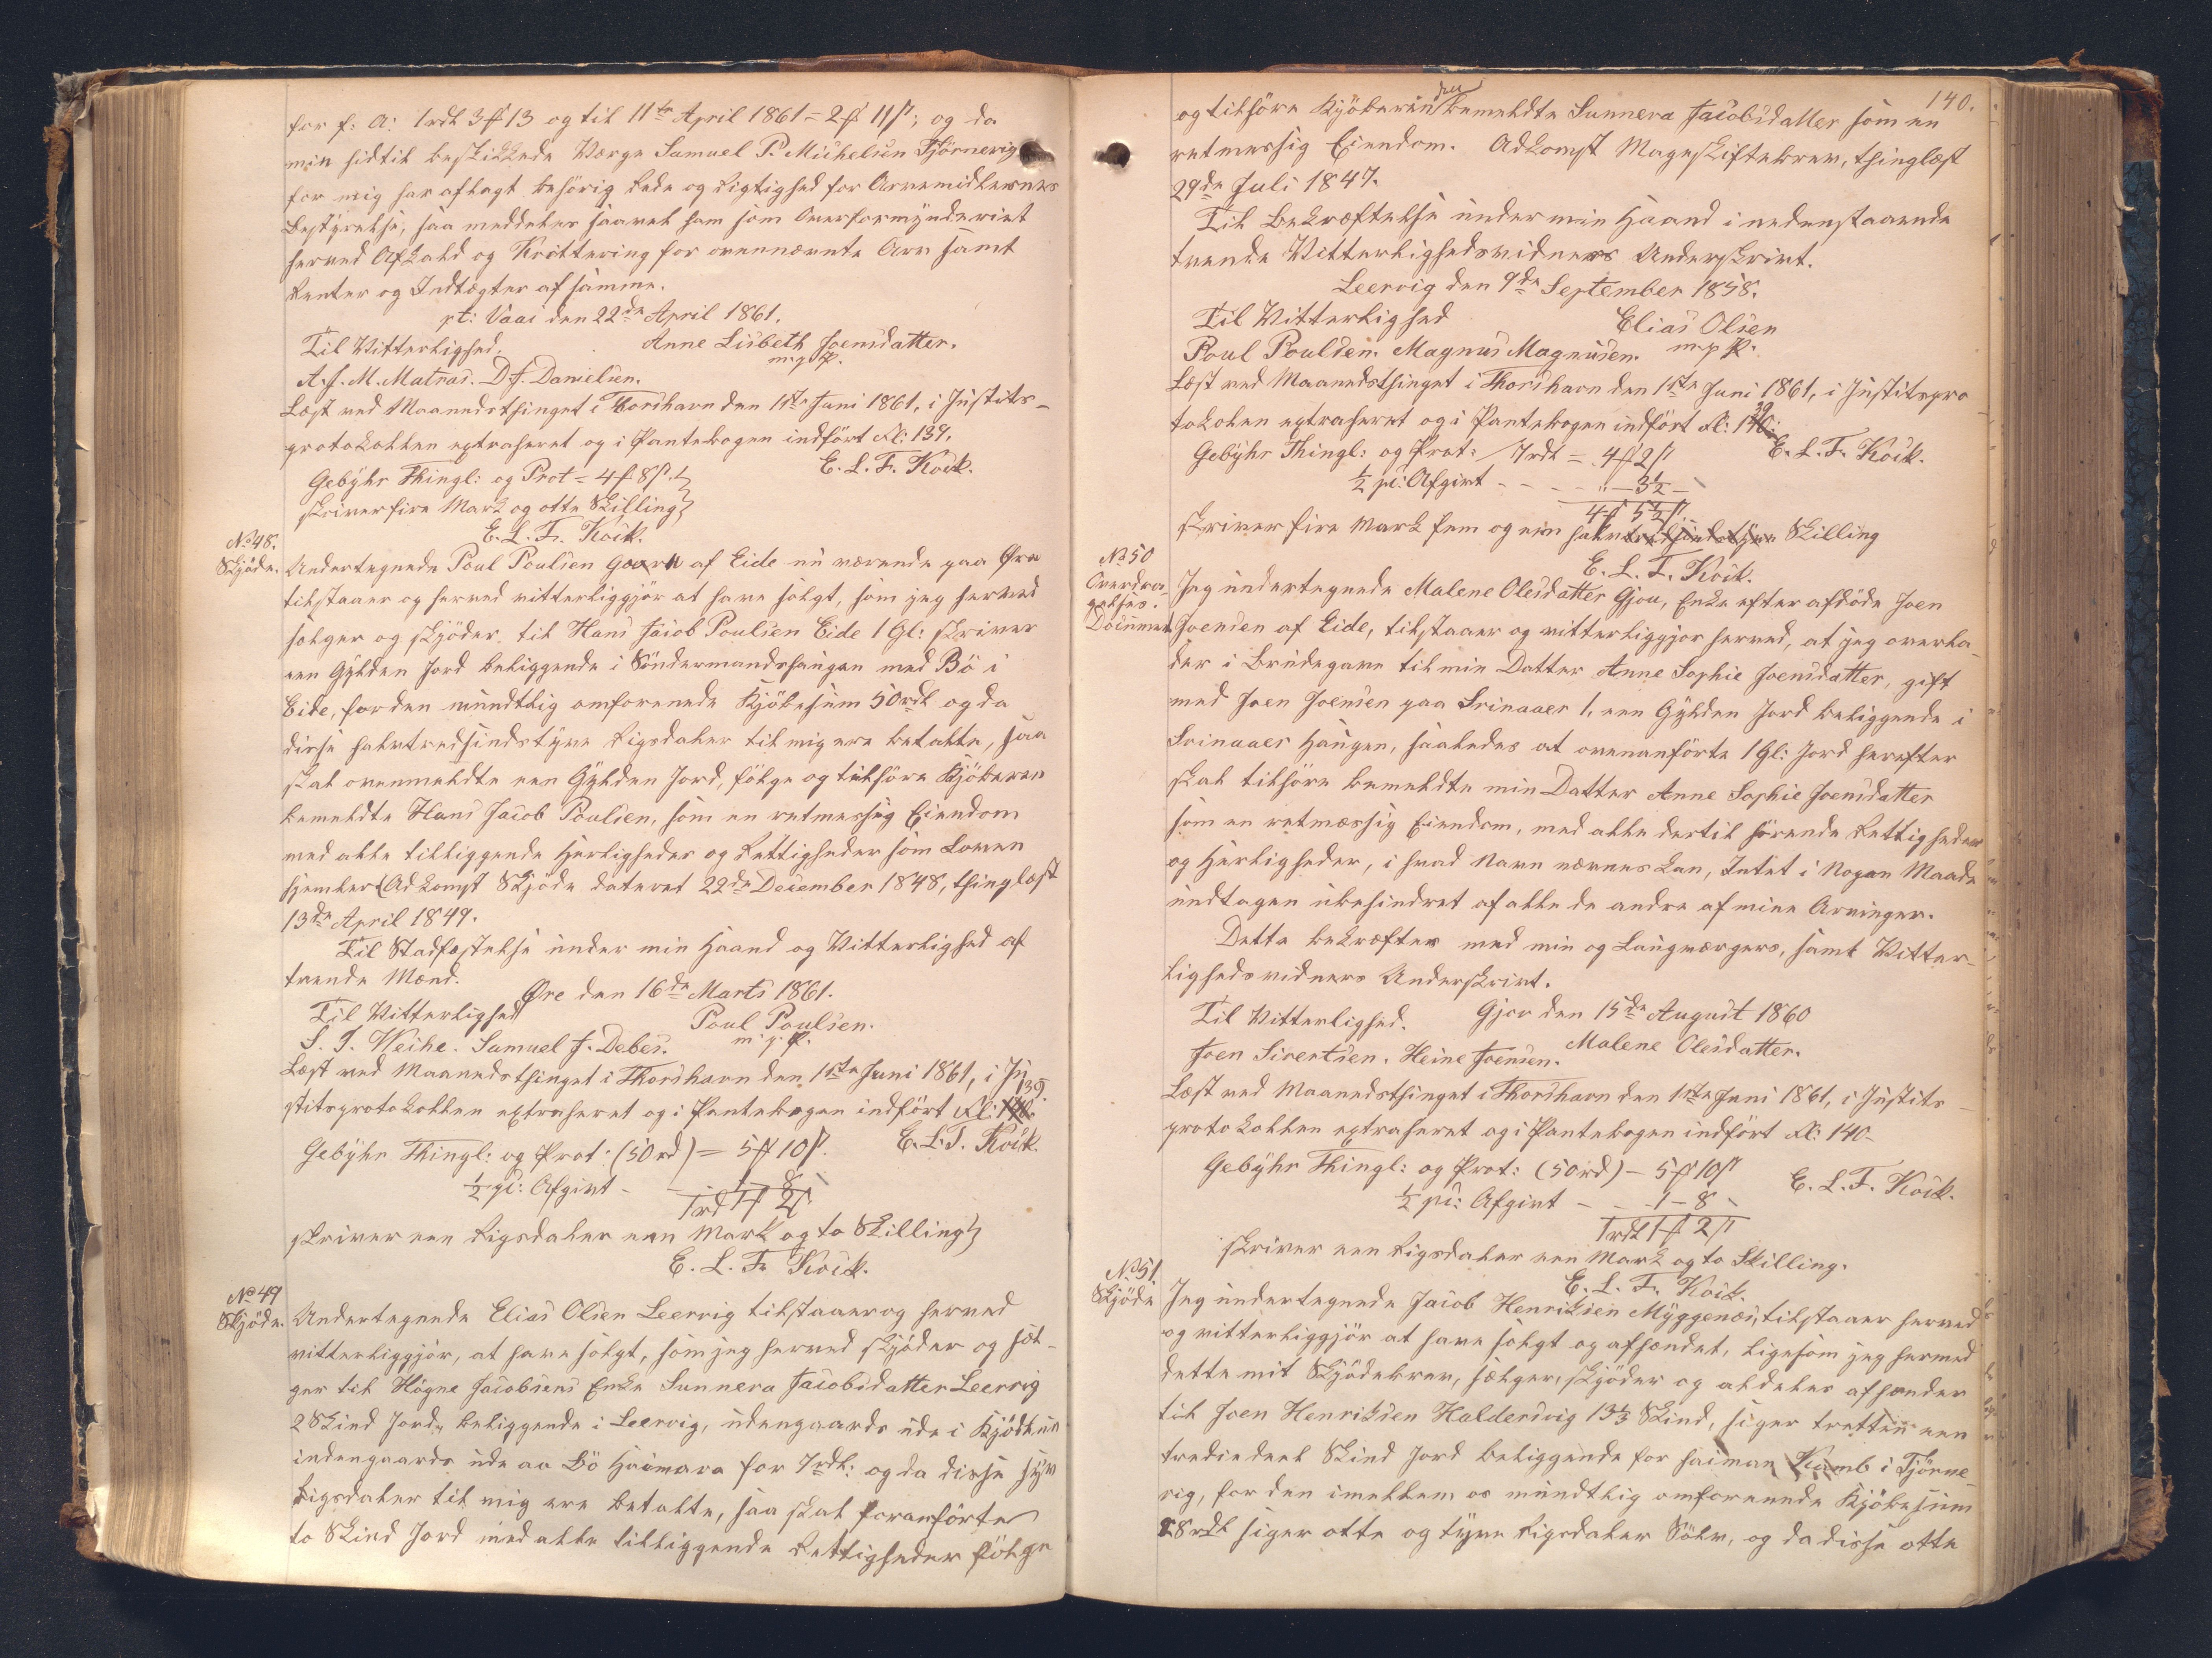 for f: A: 1rdl 3ß 13 og til 11te April 1861 = 2ß 11ß; og da
min hidtil beskikkede Værge Samuel P. Michelsen Tjörnevig
for mig har aflagt behörig Rede og Rigtighed for Arvemidlernes
Bestyrelse, saa meddeles saavel ham som Overformynderiet
herved Afkald og Kvittering for ovennævnte Arv samt
Renter og Indtægter af samme.
pt: Vaai den 22de April 1861.
Til Vitterlighed. Anne Lisbeth Joensdatter.
m. p. P.
A. J. M. Matras. D. J. Danielsen.
Læst ved Maanedsthinget i Thorshavn den 1ste Juni 1861, i Justits-
protokollen extraheret og i Pantebogen indfört Fl: 139.
E. L. F. Kock.
Gebyhr Thingl: og Prot = 4ß 8ß.
skriver fire Mark og otte Skilling
E. L. F. Kock.
No 48.
Skjöde.
Undertegnede Poul Poulsen af Eide nu værende paa Öre
tilstaaer og herved vitterliggjör at have solgt, som jeg herved
sælger og skjöder til Hans Jacob Poulsen Eide 1 Gl: skriver
een Gylden Jord beliggende i Söndermandshaugen med Bö i
Eide, for den mundtlig omforenede Kjöbesum 50rdl og da
disse halvtredsindstyve Rigsdaler til mig ere betalte, saa
skal ovenmeldte een Gylden Jord, fölge og tilhöre Kjöberen
bemeldte Hans Jacob Poulsen, som en retmessig Eiendom
med alle tilliggende Herligheder og Rettigheder som Loven
hjemler (Adkomst Skjöde dateret 22de December 1848, thinglæst
13de April 1849.
Til Stadfæstelse under min Haand og Vitterlighed af
tvende Mænd.
Öre den 16de Marts 1861.
Til Vitterlighed Poul Poulsen.
m. p. P.
S. J. Weihe. Samuel J. Debes.
Læst ved Maanedsthinget i Thorshavn den 1ste Juni 1861, i Ju
stitsprotokollen extraheret og i Pantebogen indfört Fl: 139.
Gebyhr Thingl: og Prot: (50 rd) = 5ß 10ß. E. L. F. Kock.
½ pC: Afgivt - 1 - 8 -
1rd 1ß 2ß
skriver een Rigsdaler een Mark og to Skilling
E. L. F. Kock.
No 49
Skjöde.
Undertegnede Elias Olsen Leervig tilstaaer og herved
vitterliggjör, at have solgt, som jeg herved skjöder og sæl-
ger til Högne Jacobsens Enke Sunneva Jacobsdatter Leervig
2 Skind Jord, beliggende i Leervig, udengaards ude i Kjödlun
indengaards ude aa Bö Haimara for 7rdl: og da disse syv
Rigsdaler til mig ere betalte, saa skal foranförte
to Skind Jord med alle tilliggende Rettigheder fölge
140.
og tilhöre Kjöberinden bemeldte Sunneva Jacobsdatter som en
retmessig Eiendom. Adkomst Mageskiftebrev, thinglæst
29de Juli 1847.
Til Bekræftelse under min Haand i nedenstaaende
tvende Vitterlighedsvidners Underskrivt.
Leervig den 9de September 1858.
Til Vitterlighed Elias Olsen
m. p. P.
Poul Poulsen. Magnus Magnusen.
Læst ved Maanedsthinget i Thorshavn den 1ste Juni 1861, i Justitspro
tokolen extraheret og i Pantebogen indfört Fl: 139
E. L. F. Kock.
Gebyhr Thingl: og Prot: 7rdl = 4ß 2ß
½ pC: Afgivt - - - - " - 3½ -
4ß 5½ß
skriver fire Mark fem og een halv Skilling
E. L. F. Kock.
No 50
Overdra-
gelses-
Document
Jeg undertegnede Malene Olesdatter Gjou, Enke efter afdöde Joen
Joensen af Eide, tilstaaer og vitterliggjor herved, at jeg overla-
der i Brudegave til min Datter Anne Sophie Joensdatter, gift
med Joen Joensen paa Svinaaer 1, een Gylden Jord beliggende i
Svinaaes Haugen, saaledes at ovenanförte 1 Gl: Jord herefter
skal tilhöre bemeldte min Datter Anne Sophie Joensdatter
som en retmæssig Eiendom, med alle dertil hörende Rettigheder
og Herligheder, i hvad Navn nævnes kan, Intet i Nogen Maade
undtagen ubehindret af alle de andre af mine Arvinger.
Dette bekræfter med min og Laugværgers, samt Vitter-
lighedsvidners Underskrivt.
Gjov den 15de August 1860
Til Vitterlighed. Malene Olesdatter.
Joen Sivertsen. Heine Joensen.
Læst ved Maanedsthinget i Thorshavn den 1ste Juni 1861, i Justits
protokollen extraheret og i Pantebogen indfört Fl: 140.
Gebyhr Thingl: og Prot: (50rd) - 5ß 10ß E. L. F. Kock.
½ pC: Afgivt - - 1 - 8 -
1rdl 1ß 2ß
skriver een Rigsdaler een Mark og to Skilling.
E. L. F. Kock.
No 51.
Skjöde
Jeg undertegnede Jacob Henriksen Myggenæs, tilstaaer herved
og vitterliggjör at have solgt og afhændet, ligesom jeg hermed
dette mit Skjödebrev, sælger, skjöder og aldeles afhænder
til Joen Henriksen Haldersvig 13⅓ Skind, siger tretten een
tredie deel Skind Jord beliggende for haiman Kamb i Tjörne
vig, for den imellem os mundtlig omforenede Kjöbesum
28rdl siger otte og tyve Rigsdaler Sölv, og da disse otte